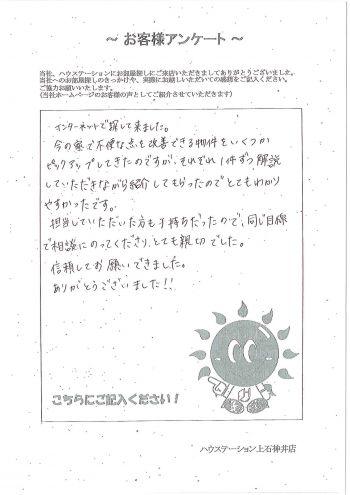 ～ お客様アンケート ～
当社、ハウステーションにお部屋探しにご来店いただきましてありがとうございました。
当社へのお部屋探しのきっかけや、実際にお越しいただいての感想をご記入ください。
ご協力お願いいたします。
(当社ホームページのお客様の声としてご紹介させていただきます)
インターネットで探して来ました。
今の家で不便な点を改善できる物件をいくつか
ピックアップしてきたのですが、それぞれ1件ずつ解説
していただきながら紹介してもらったのでとてもわかり
やすかったです。
担当していただいた方も子持ちだったので、同じ目線
で相談にのってくださり、とても親切でした。
信頼してお願いできました。
ありがとうございました!!
こちらにご記入ください！
ハウステーション上石神井店